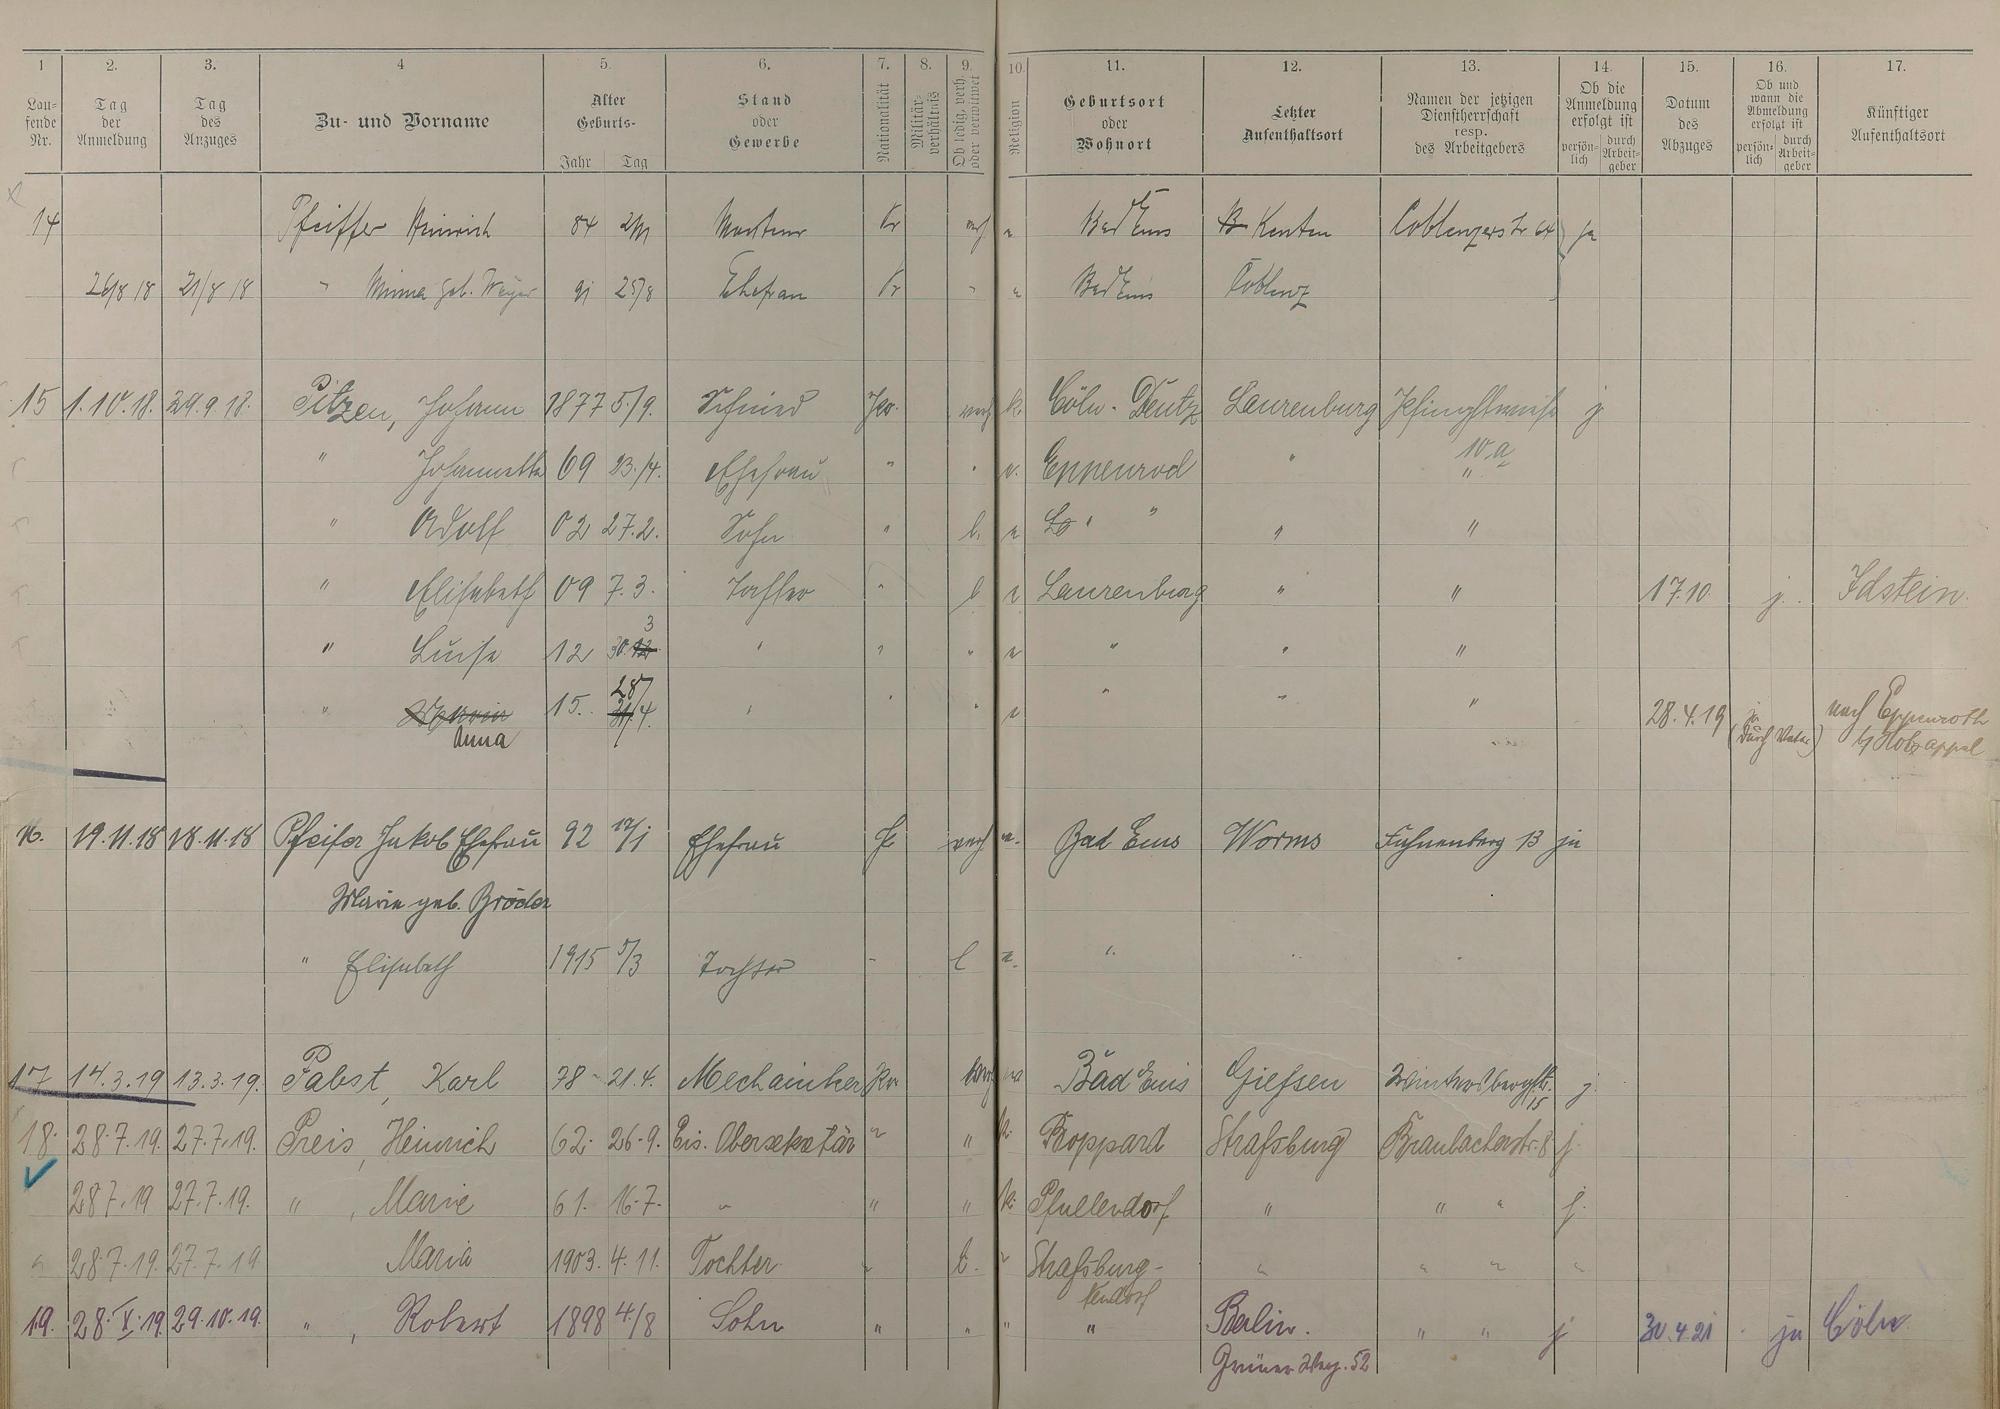 1 2. 3. 4 5. 6. 7. 8. 9. 10. 11. 12. 13. 14. 15. 16. 17.
Lau-
fende
Nr.
Tag
der
Anmeldung
Tag
des
Anzuges
Zu- und Vorname
Alter
Geburts-
Jahr Tag
Stand
oder
Gewerbe
Nationalität
Militär-
verhältnis
Ob ledig, verh.
oder verwitwet
Religion
Geburtsort
oder
Wohnort
Letzter
Aufenthaltsort
Namen der jetzigen
Dienstherrschaft
resp.
des Arbeitgebers
Ob die
Anmeldung
erfolgt ist
persön-
lich
durch
Arbeit-
geber
Datum
des
Abzuges
Ob und
wann die
Abmeldung
erfolgt ist
persön-
lich
durch
Arbeit-
geber
Künftiger
Aufenthaltsort
14 Pfeiffer Heinrich 84 Monteur Pr verh Bad Ems Coblenzerstr 64 ja
26/8 18 21/8 18 " Minna geb. 91 25/8 Ehefrau Pr " Bad Ems Coblenz
15 1.10.18. 29.9.18. Pitzen, Johann 1877 5/9. Schmied Pr. verh k. Cöln-Deutz Laurenburg Pfingstwiese j
10a
" Johannette 69 23./4. Ehefrau " " Eppenrod " "
" Adolf 02 27.2. Sohn " l. " " "
" Elisabeth 09 7.3. Tochter " l Laurenburg " " 17.10. j. Idstein.
3
" Luise 12 30. " " " " " "
28/
" 15. 4. " " " " " " 28.4.19 ja nach Eppenroth
Anna (durch Vater) b/ Holzappel
16. 19.11.18 18.11.18 Pfeifer Jakob Ehefrau 92 17/1 Ehefrau Pr verh Bad Ems Worms Fahnenberg 13 ja
Marie geb. Bröder
" Elisabeth 1915 5/3 Tochter " l "
17 14.3.19 13.3.19. Pabst, Karl 78 21.4. Mechainker Pr. verh Bad Ems Giefsen Wintersbergstr. j.
15
18. 28.7.19. 27.7.19. Preis, Heinrich 62. 26.9. Eis. Obersekretär " " k. Boppard Strafsburg Braubacherstr. 8 j.
28.7.19 27.7.19. " , Marie 61. 16.7. " " " k. Pfullendorf " " " j.
" 28.7.19. 27.7.19 Maria 1903. 4.11. Tochter " l. " Strafsburg- " " " "
19. 28.X.19. 29.10.19. " , Robert 1898 4/8 Sohn " " " " Berlin. " " j 30.4.21 ja Cöln
Grüner Weg. 52